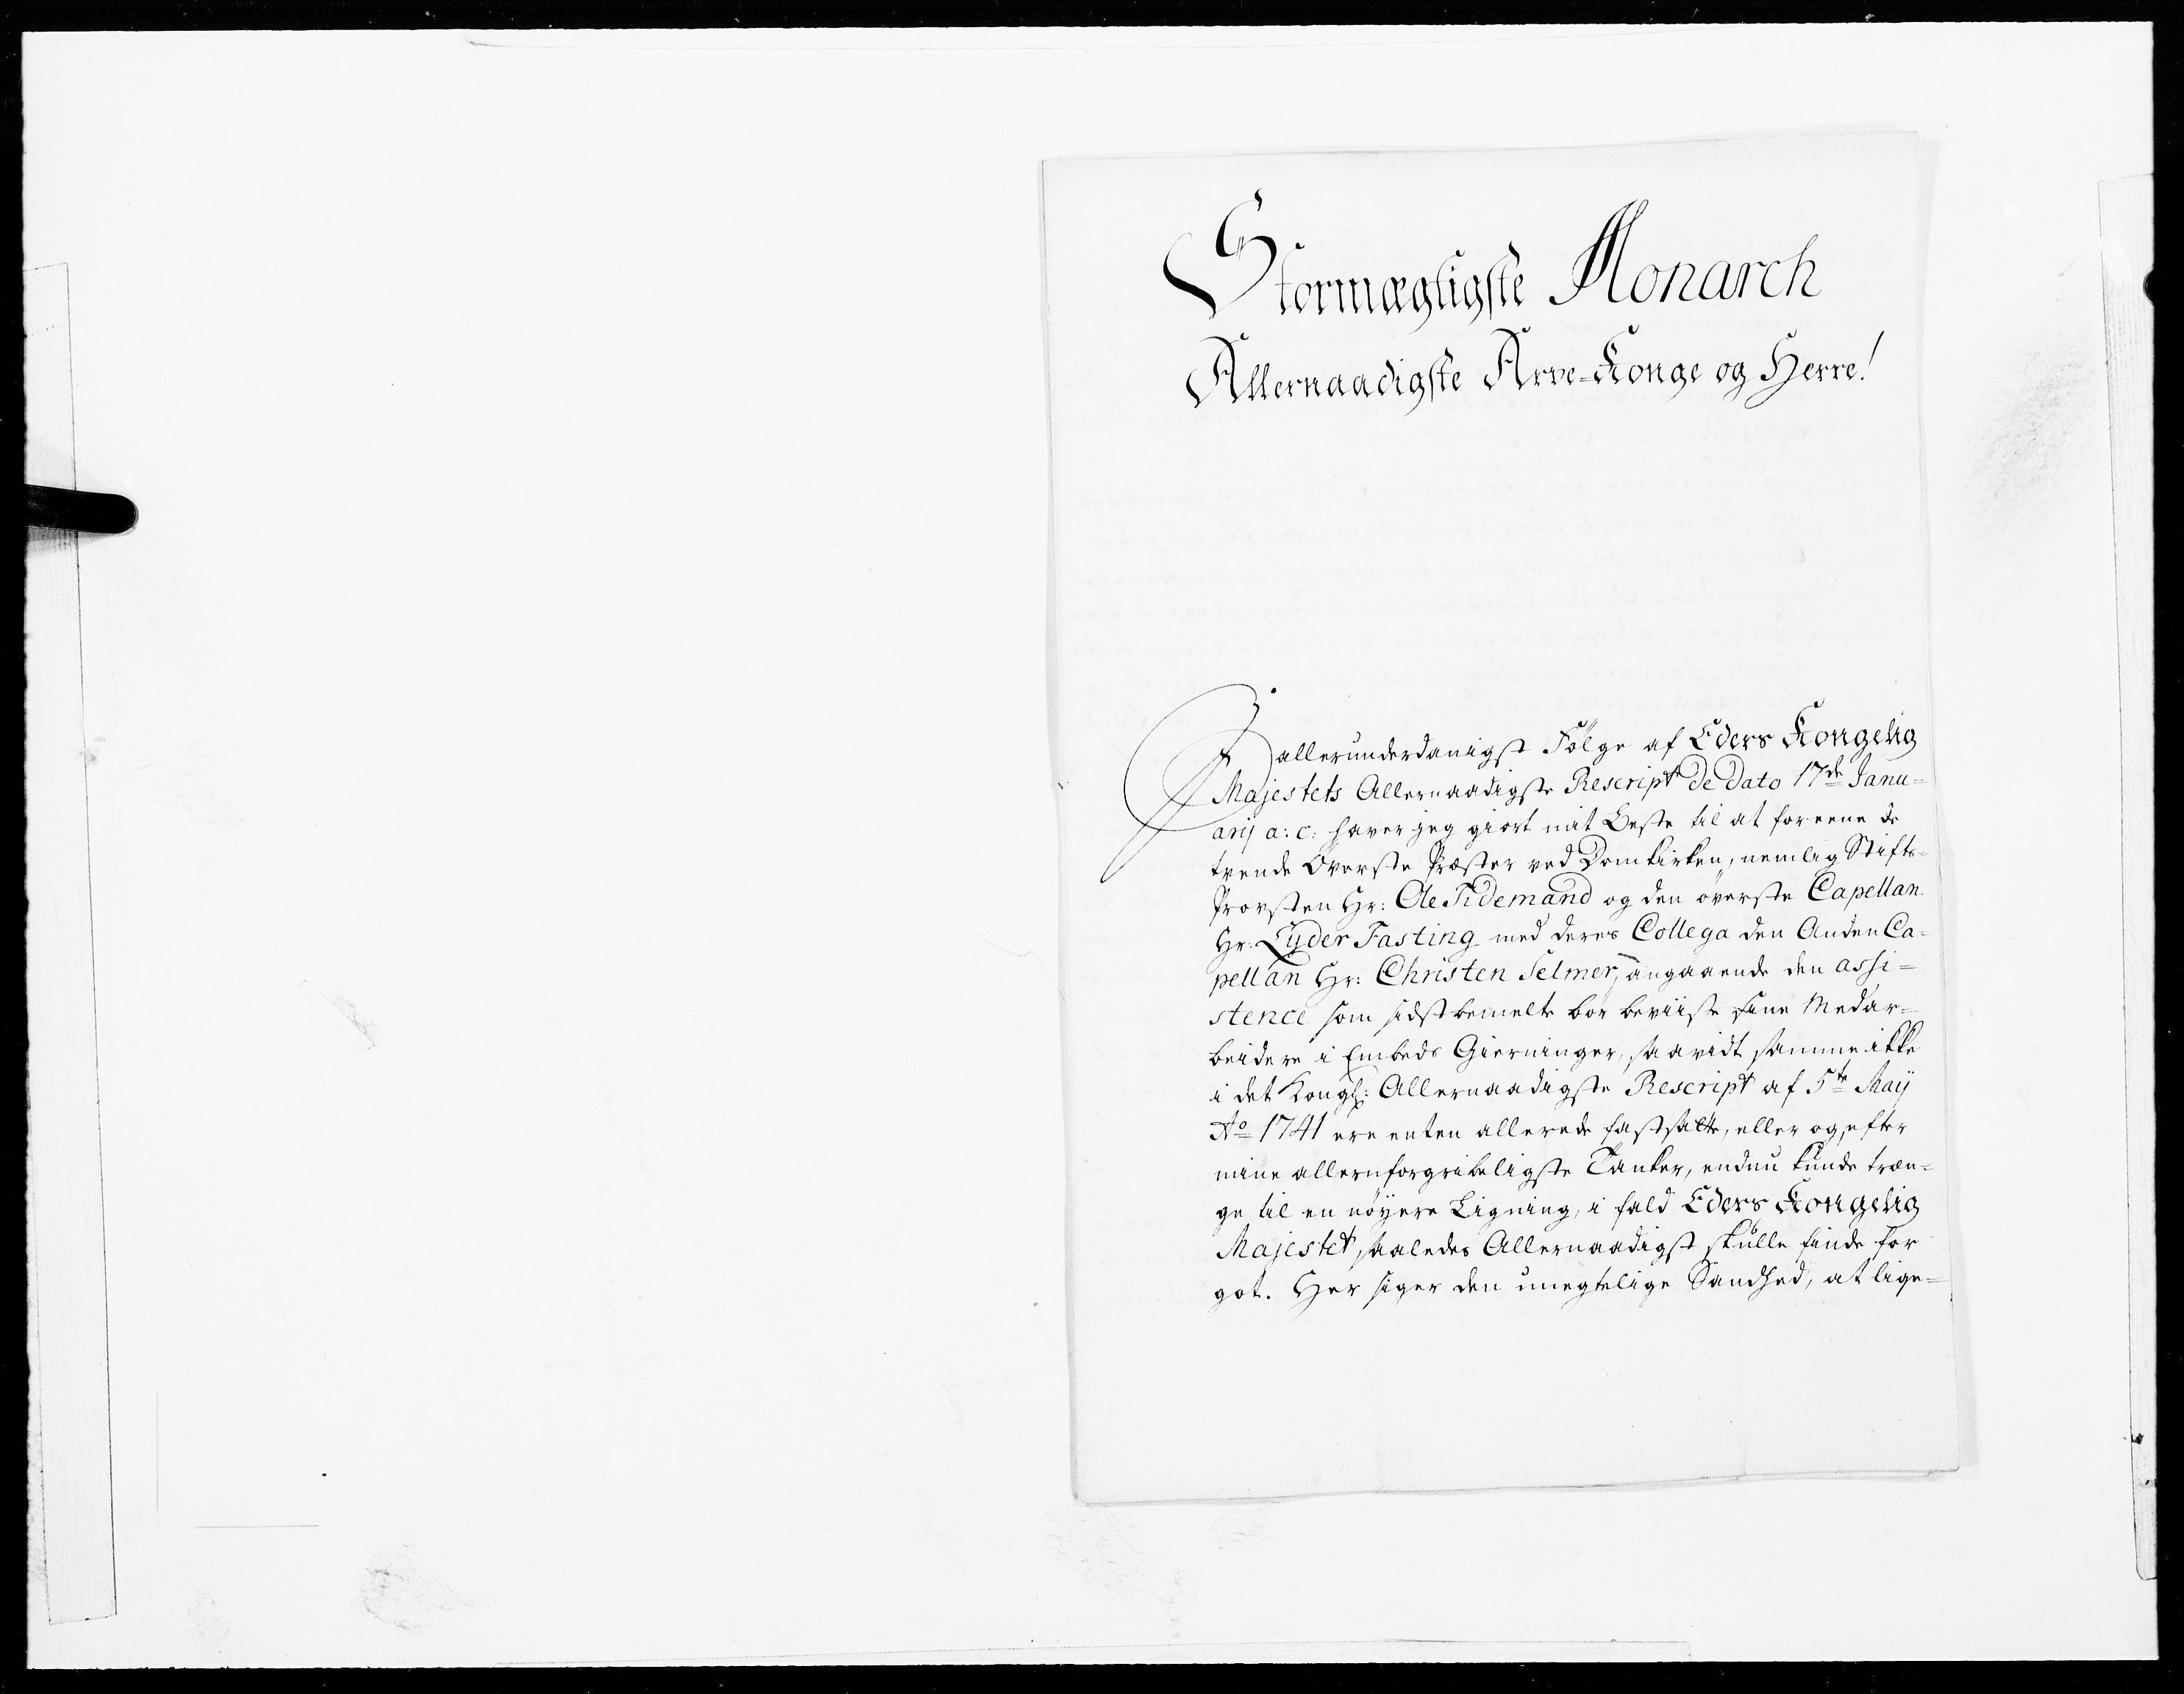 Stormægtigste Monarch
Allernaadigste Arve-Konge og Herre!
I allerunderdanigst Følge af Eders Kongelig
Majestets Allernaadigste Rescript de dato 17de Janu-
arij a: c: haver jeg giort mit Beste til at foreene de
tvende Øverste Præster ved Domkirken, nemlig Stifts-
Provsten Hr: Ole Tidemand og den øverste Capellan
Hr: Lyder Fasting med deres Collega den Anden Ca-
pellan Hr: Christen Selmer, angaaende den assi-
stence som sidstbemelte bør beviise sine Medar-
beidere i Embeds Gierninger, saavidt samme ikke
i det Kongl: Allernaadigste Rescript af 5te Maij
Ao 1741 ere enten allerede fastsatte, eller og, efter
mine allernforgribeligste Tanker, endnu kunde træn-
ge til en nøyere Ligning, i fald Eders Kongelig
Majestet saaledes Allernaadigst skulle finde for
got. Her siger den unegtelige Sandhed, at lige-